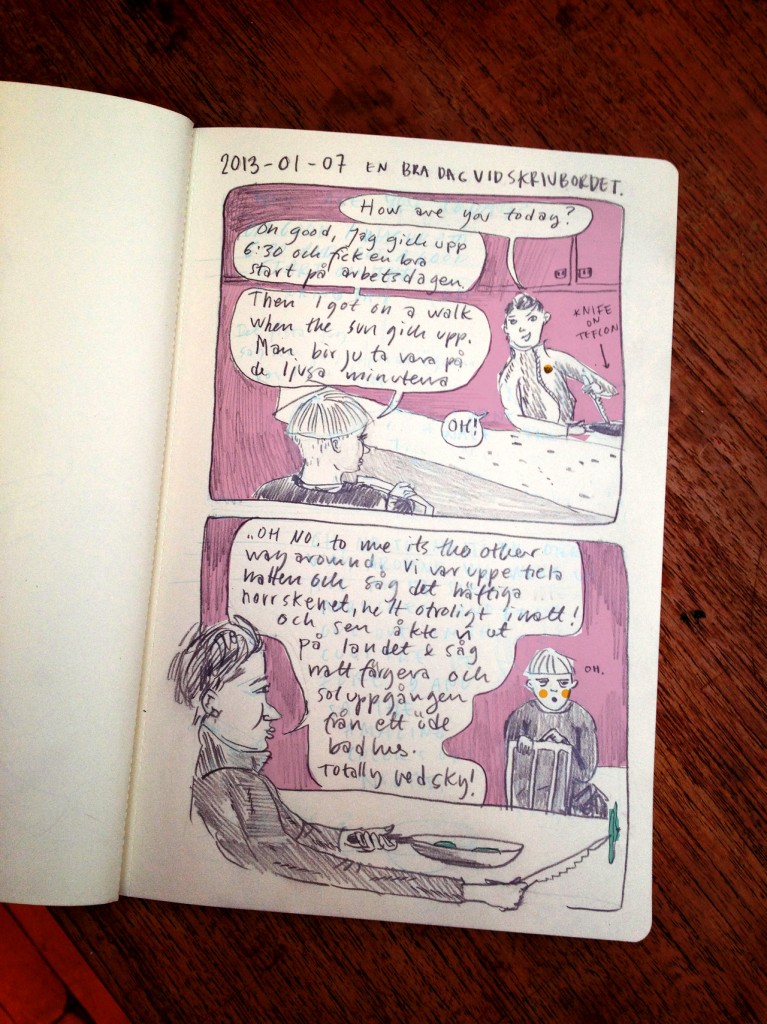 2013-01-07 EN BRA DAG VID SKRIVBORDET.
How are you today?
Oh good, Jag gick upp
6:30 och fick en bra
start på arbetsdagen.
Then I got on a walk
when the sun gick upp.
Man bör ju ta vara på
de ljusa minuterna
KNIFE
ON
TEFLON
OH!
"OH NO. to me its the other
way around. vi var uppe hela
natten och såg det häftiga
norrskenet, helt otroligt inatt!
och sen åkte vi ut
på landet & såg
natt färgera och
soluppgången
från ett öde
badhus.
Totally red sky!
OH.